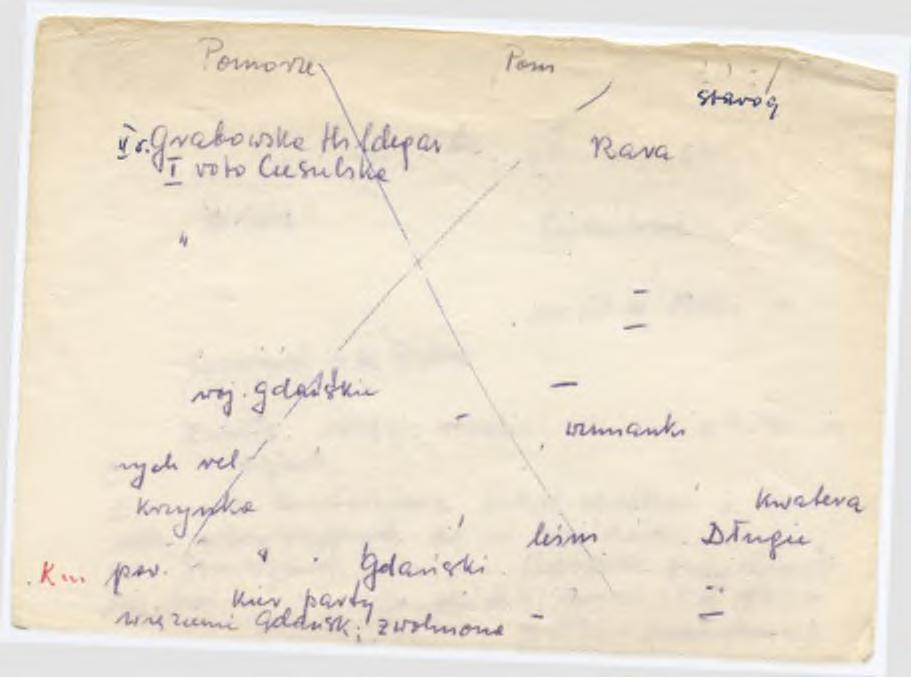 Pomorze Pom
starog
V v. Grabowska Hildegar Rava
I voto Ciesulska
"
woj. gdańskie
wzmianki
nych rel
Krzynka kwatera
leśni Długie
Km pow. " Gdański
kier party
więzieniu Gdańsk; zwolniona